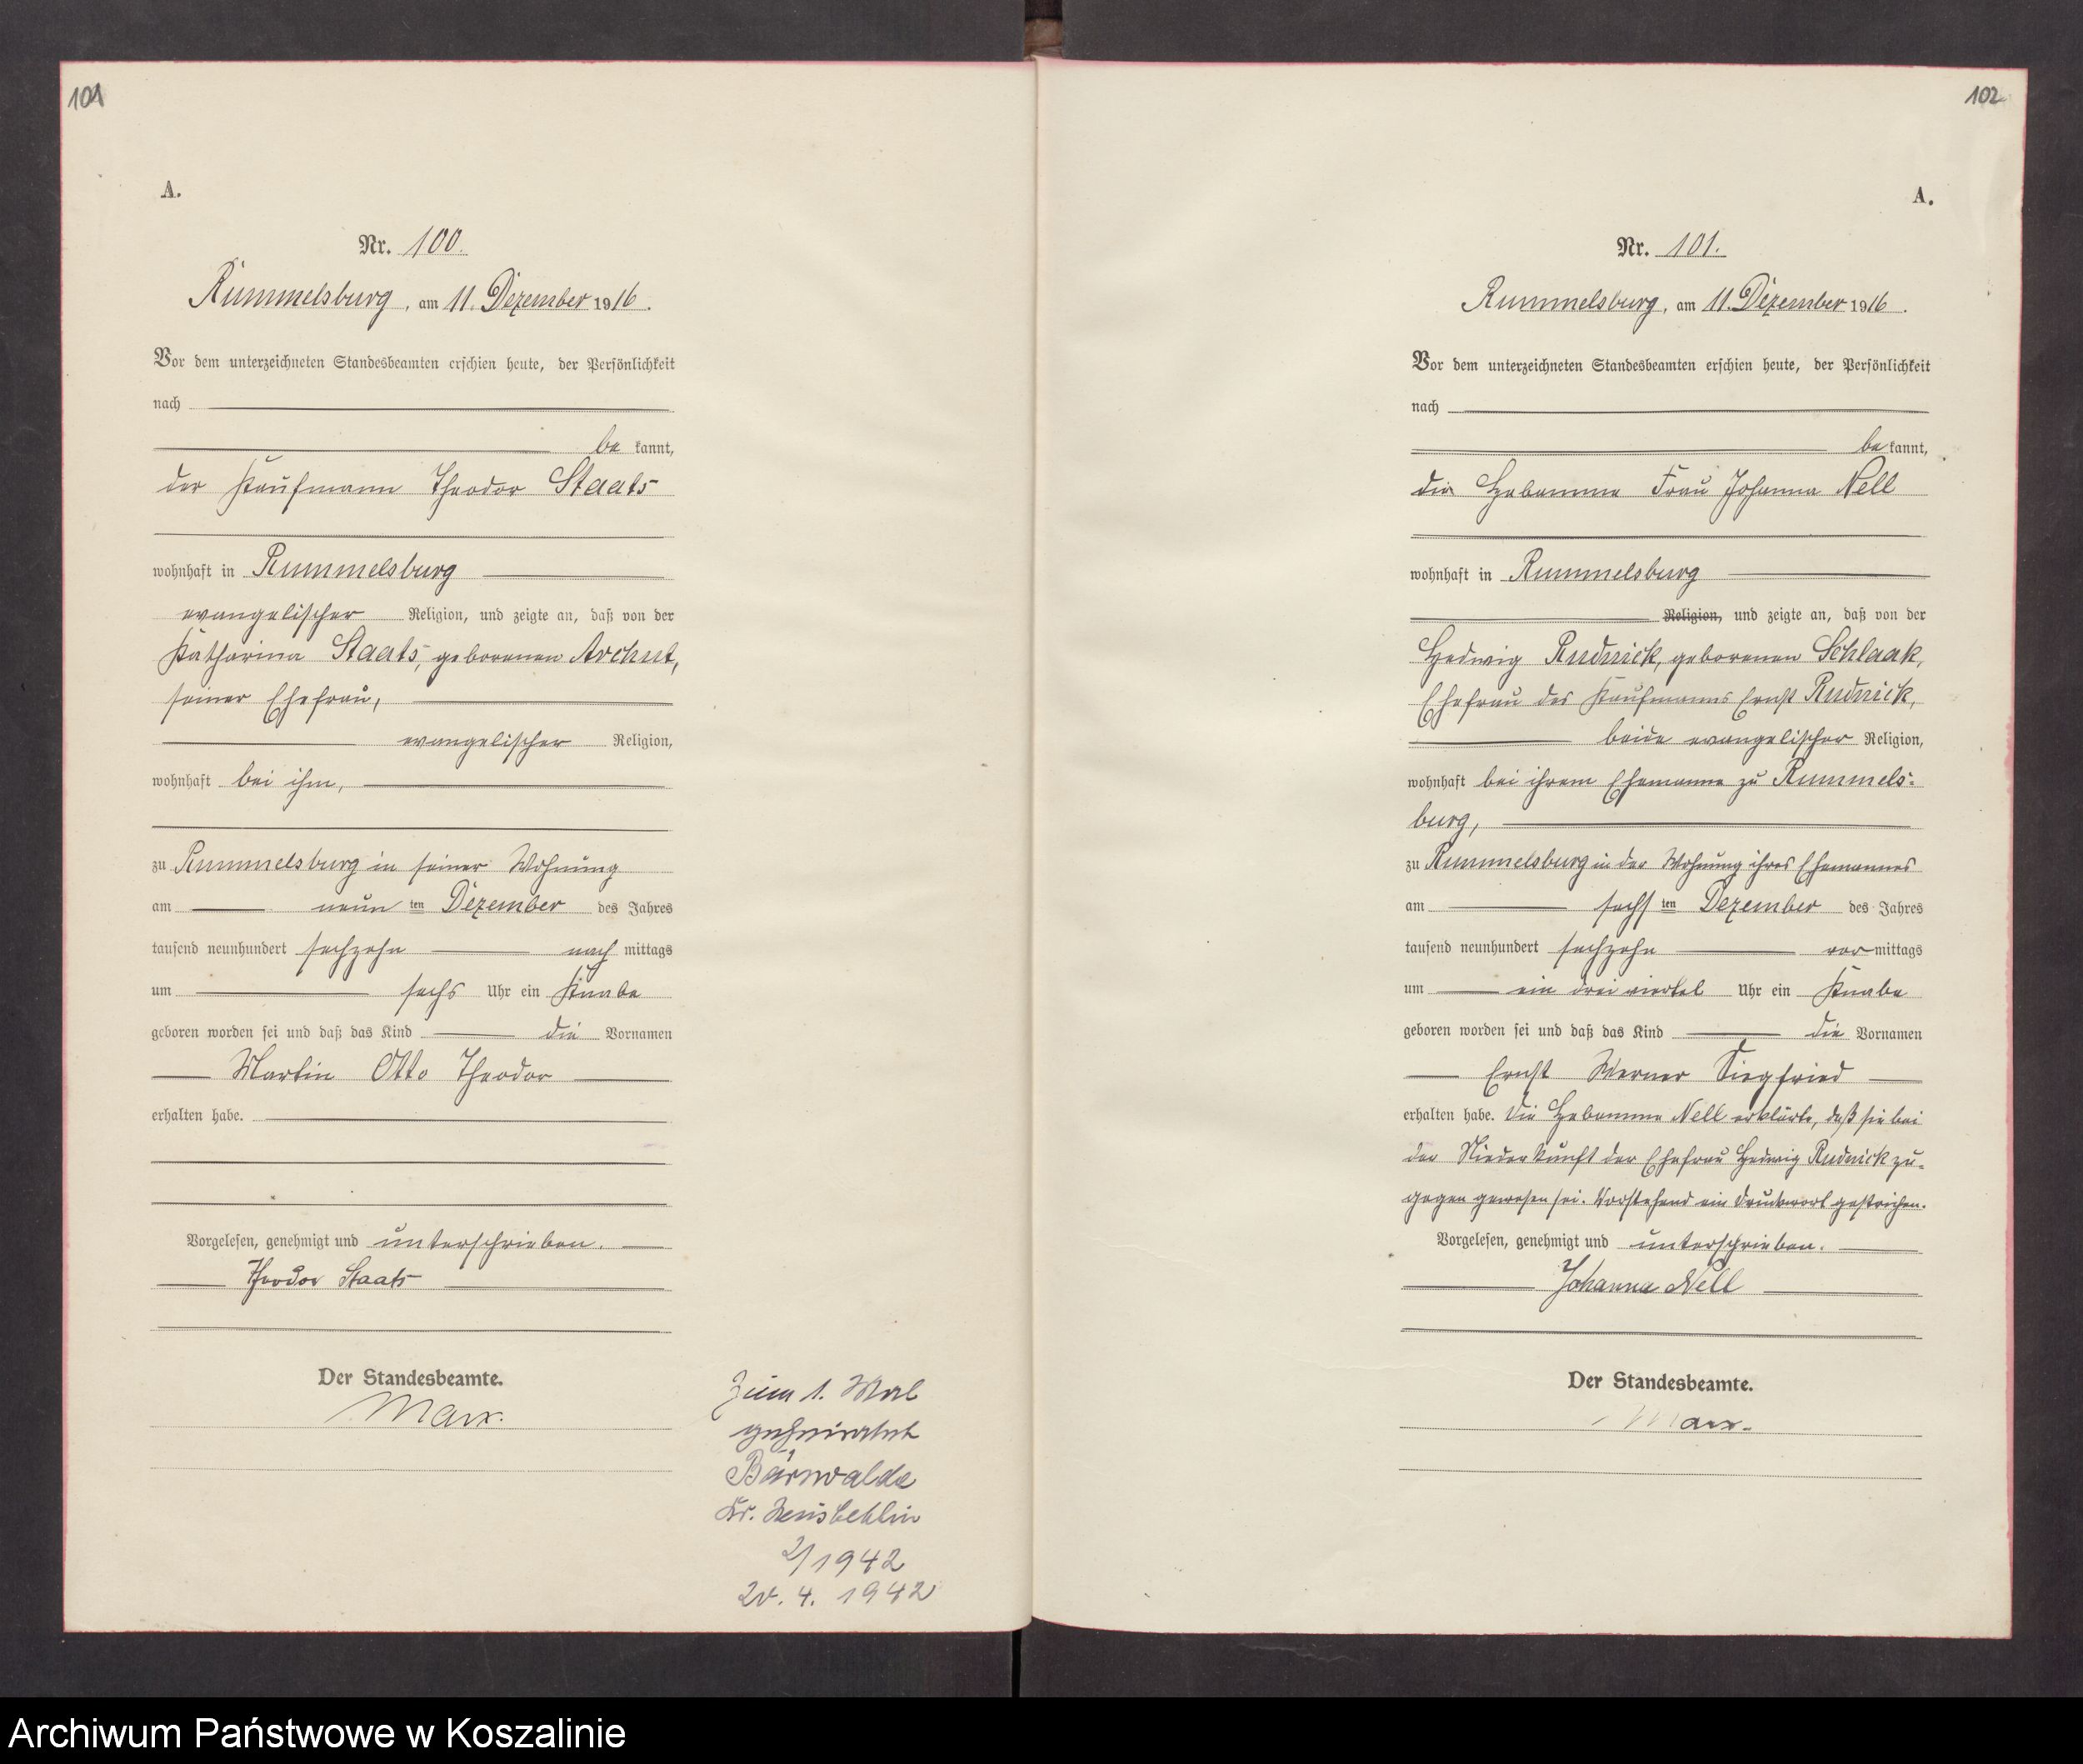 101
A.
Nr. 100.
Rummelsburg, am 11. Dezember 1916.
Vor dem unterzeichneten Standesbeamten erschien heute, der Persönlichkeit
nach
be kannt,
der Kaufmann Theodor Staats
wohnhaft in Rummelsburg
evangelischer Religion, und zeigte an, daß von der
Katharina Staats, geborenen Archut,
seiner Ehefrau,
evangelischer Religion,
wohnhaft bei ihm,
zu Rummelsburg in seiner Wohnung
am neun ten Dezember des Jahres
tausend neunhundert sechzehn nach mittags
um sechs Uhr ein Knabe
geboren worden sei und daß das Kind die Vornamen
Martin Otto Theodor
erhalten habe.
Vorgelesen, genehmigt und unterschrieben.
Theodor Staats
Der Standesbeamte.
Marx.
Zum 1. Mal
geheiratet
Bärwalde
Kr. Neustettin
2/1942
20. 4. 1942
102
A.
Nr. 101.
Rummelsburg, am 11. Dezember 1916.
Vor dem unterzeichneten Standesbeamten erschien heute, der Persönlichkeit
nach
be kannt,
die Hebamme Frau Johanna Nell
wohnhaft in Rummelsburg
Religion, und zeigte an, daß von der
Hedwig Rudnick, geborenen Schlaak,
Ehefrau des Kaufmanns Ernst Rudnick,
beide evangelischer Religion,
wohnhaft bei ihrem Ehemanne zu Rummels-
burg,
zu Rummelsburg in der Wohnung ihres Ehemannes
am sechs ten Dezember des Jahres
tausend neunhundert sechzehn vor mittags
um ein drei viertel Uhr ein Knabe
geboren worden sei und daß das Kind die Vornamen
Ernst Werner Siegfried
erhalten habe. Die Hebamme Nell erklärte, daß sie bei
der Niederkunft der Ehefrau Hedwig Rudnick zu-
gegen gewesen sei. Vorstehend ein Druckwort gestrichen.
Vorgelesen, genehmigt und unterschrieben.
Johanna Nell
Der Standesbeamte.
Marx.
Archiwum Państwowe w Koszalinie